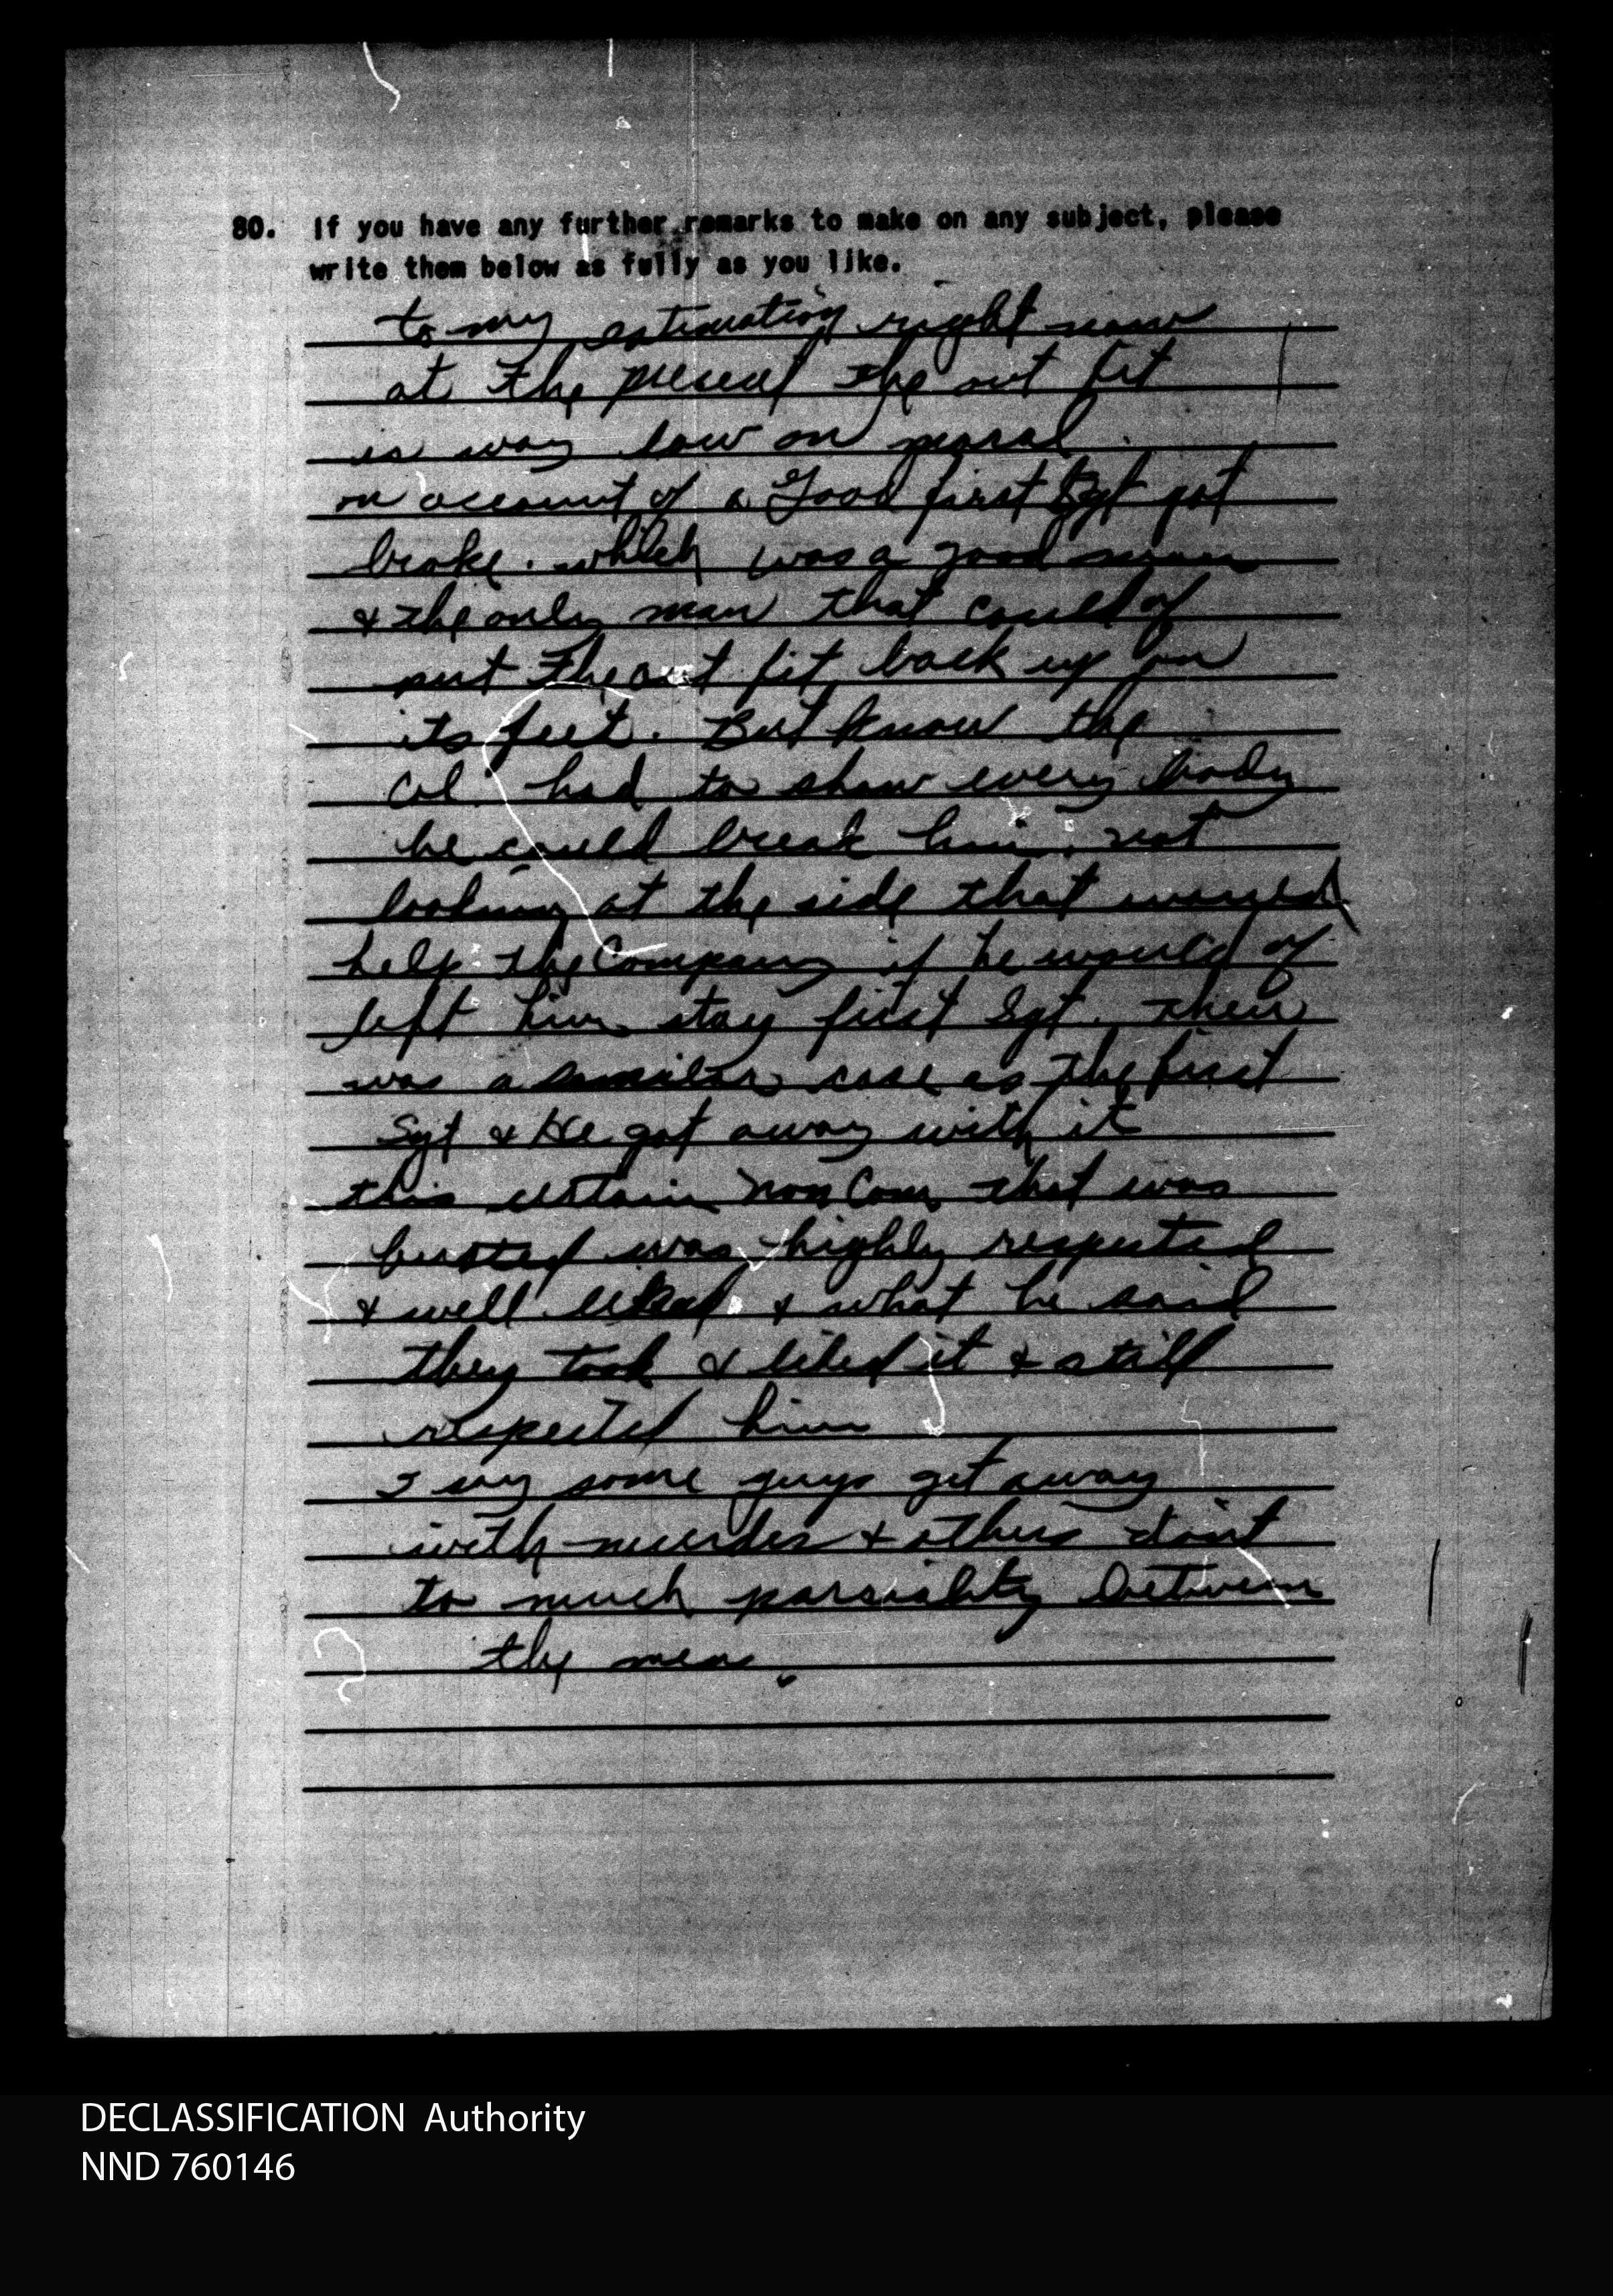 80. If you have any further remarks to make on any subject, please
write them below as fully as you like.
to my estimation right now
at the present the out fit
is way low on moral.
on account of a Good first Sgt got
broke. which was a good man
& the only man that could of
put the out fit back up on
its feet. But know the
Col. had to show every body
he could break him, not
looking at the side that would
help the Company if he would of
left him stay first Sgt. their
was a similar case as the first
Sgt & He got away with it
this certain non Com that was
busted was highly respected
& well liked & what he said
they took & liked it & still
respected him
I say some guys get away
with murder & others don't
to much parsiality between
the men.
DECLASSIFICATION Authority
NND 760146